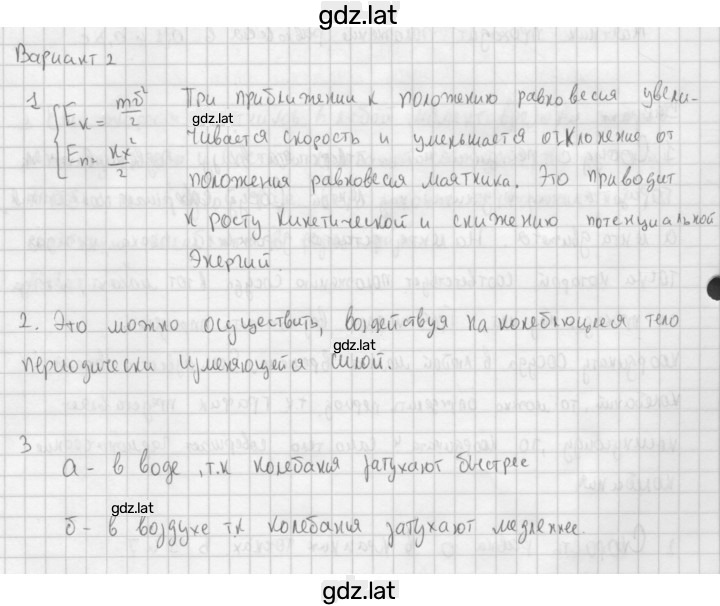 gdz.lat
Вариант 2
1 { Eк = mv²/2 При приближении к положению равновесия увели-
Eп = kx²/2 чивается скорость и уменьшается отклонение от
положения равновесия маятника. Это приводит
к росту кинетической и снижению потенциальной
Энергий.
2. Это можно осуществить, воздействуя на колеблющееся тело
gdz.lat
периодически изменяющейся силой.
3
а - в воде, т.к колебания затухают быстрее
gdz.lat
б - в воздухе т.к колебания затухают медленнее.
gdz.lat